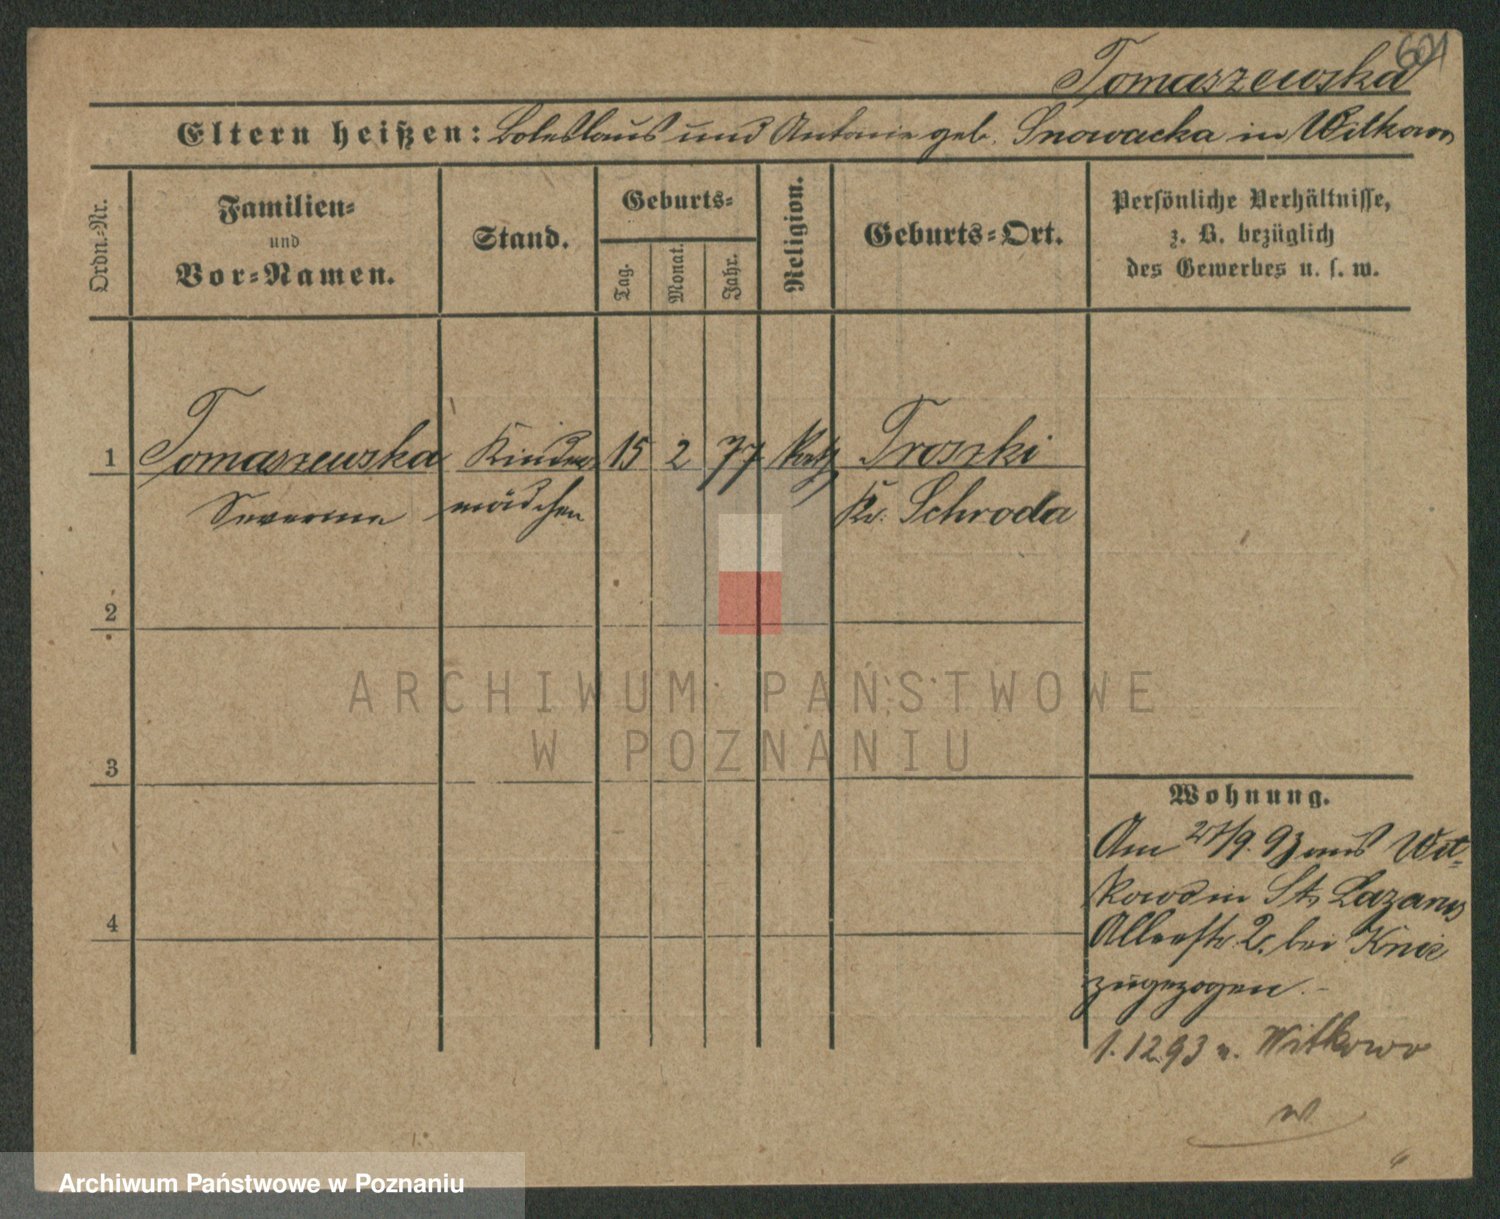 601
Tomaszewska
Eltern heißen: Boleslaus und Antonie geb. Snowacka in Witkowo
Ordn.-Nr.
Familien-
und
Vor-Namen.
Stand.
Geburts-
Tag.
Monat.
Jahr.
Religion.
Geburts-Ort.
Persönliche Verhältnisse,
z. B. bezüglich
des Gewerbes u. s. w.
1 Tomaszewska Kinder 15 2 77 kath Troszki
Severine mädchen Kr. Schroda
2
3
4
Wohnung.
Am 27/9. 93 aus Wit-
kowo in St. Lazarus
Allerstr. 2. bei
zugezogen.-
1.12.93 n. Witkowo
ARCHIWUM PAŃSTWOWE
W POZNANIU
Archiwum Państwowe w Poznaniu